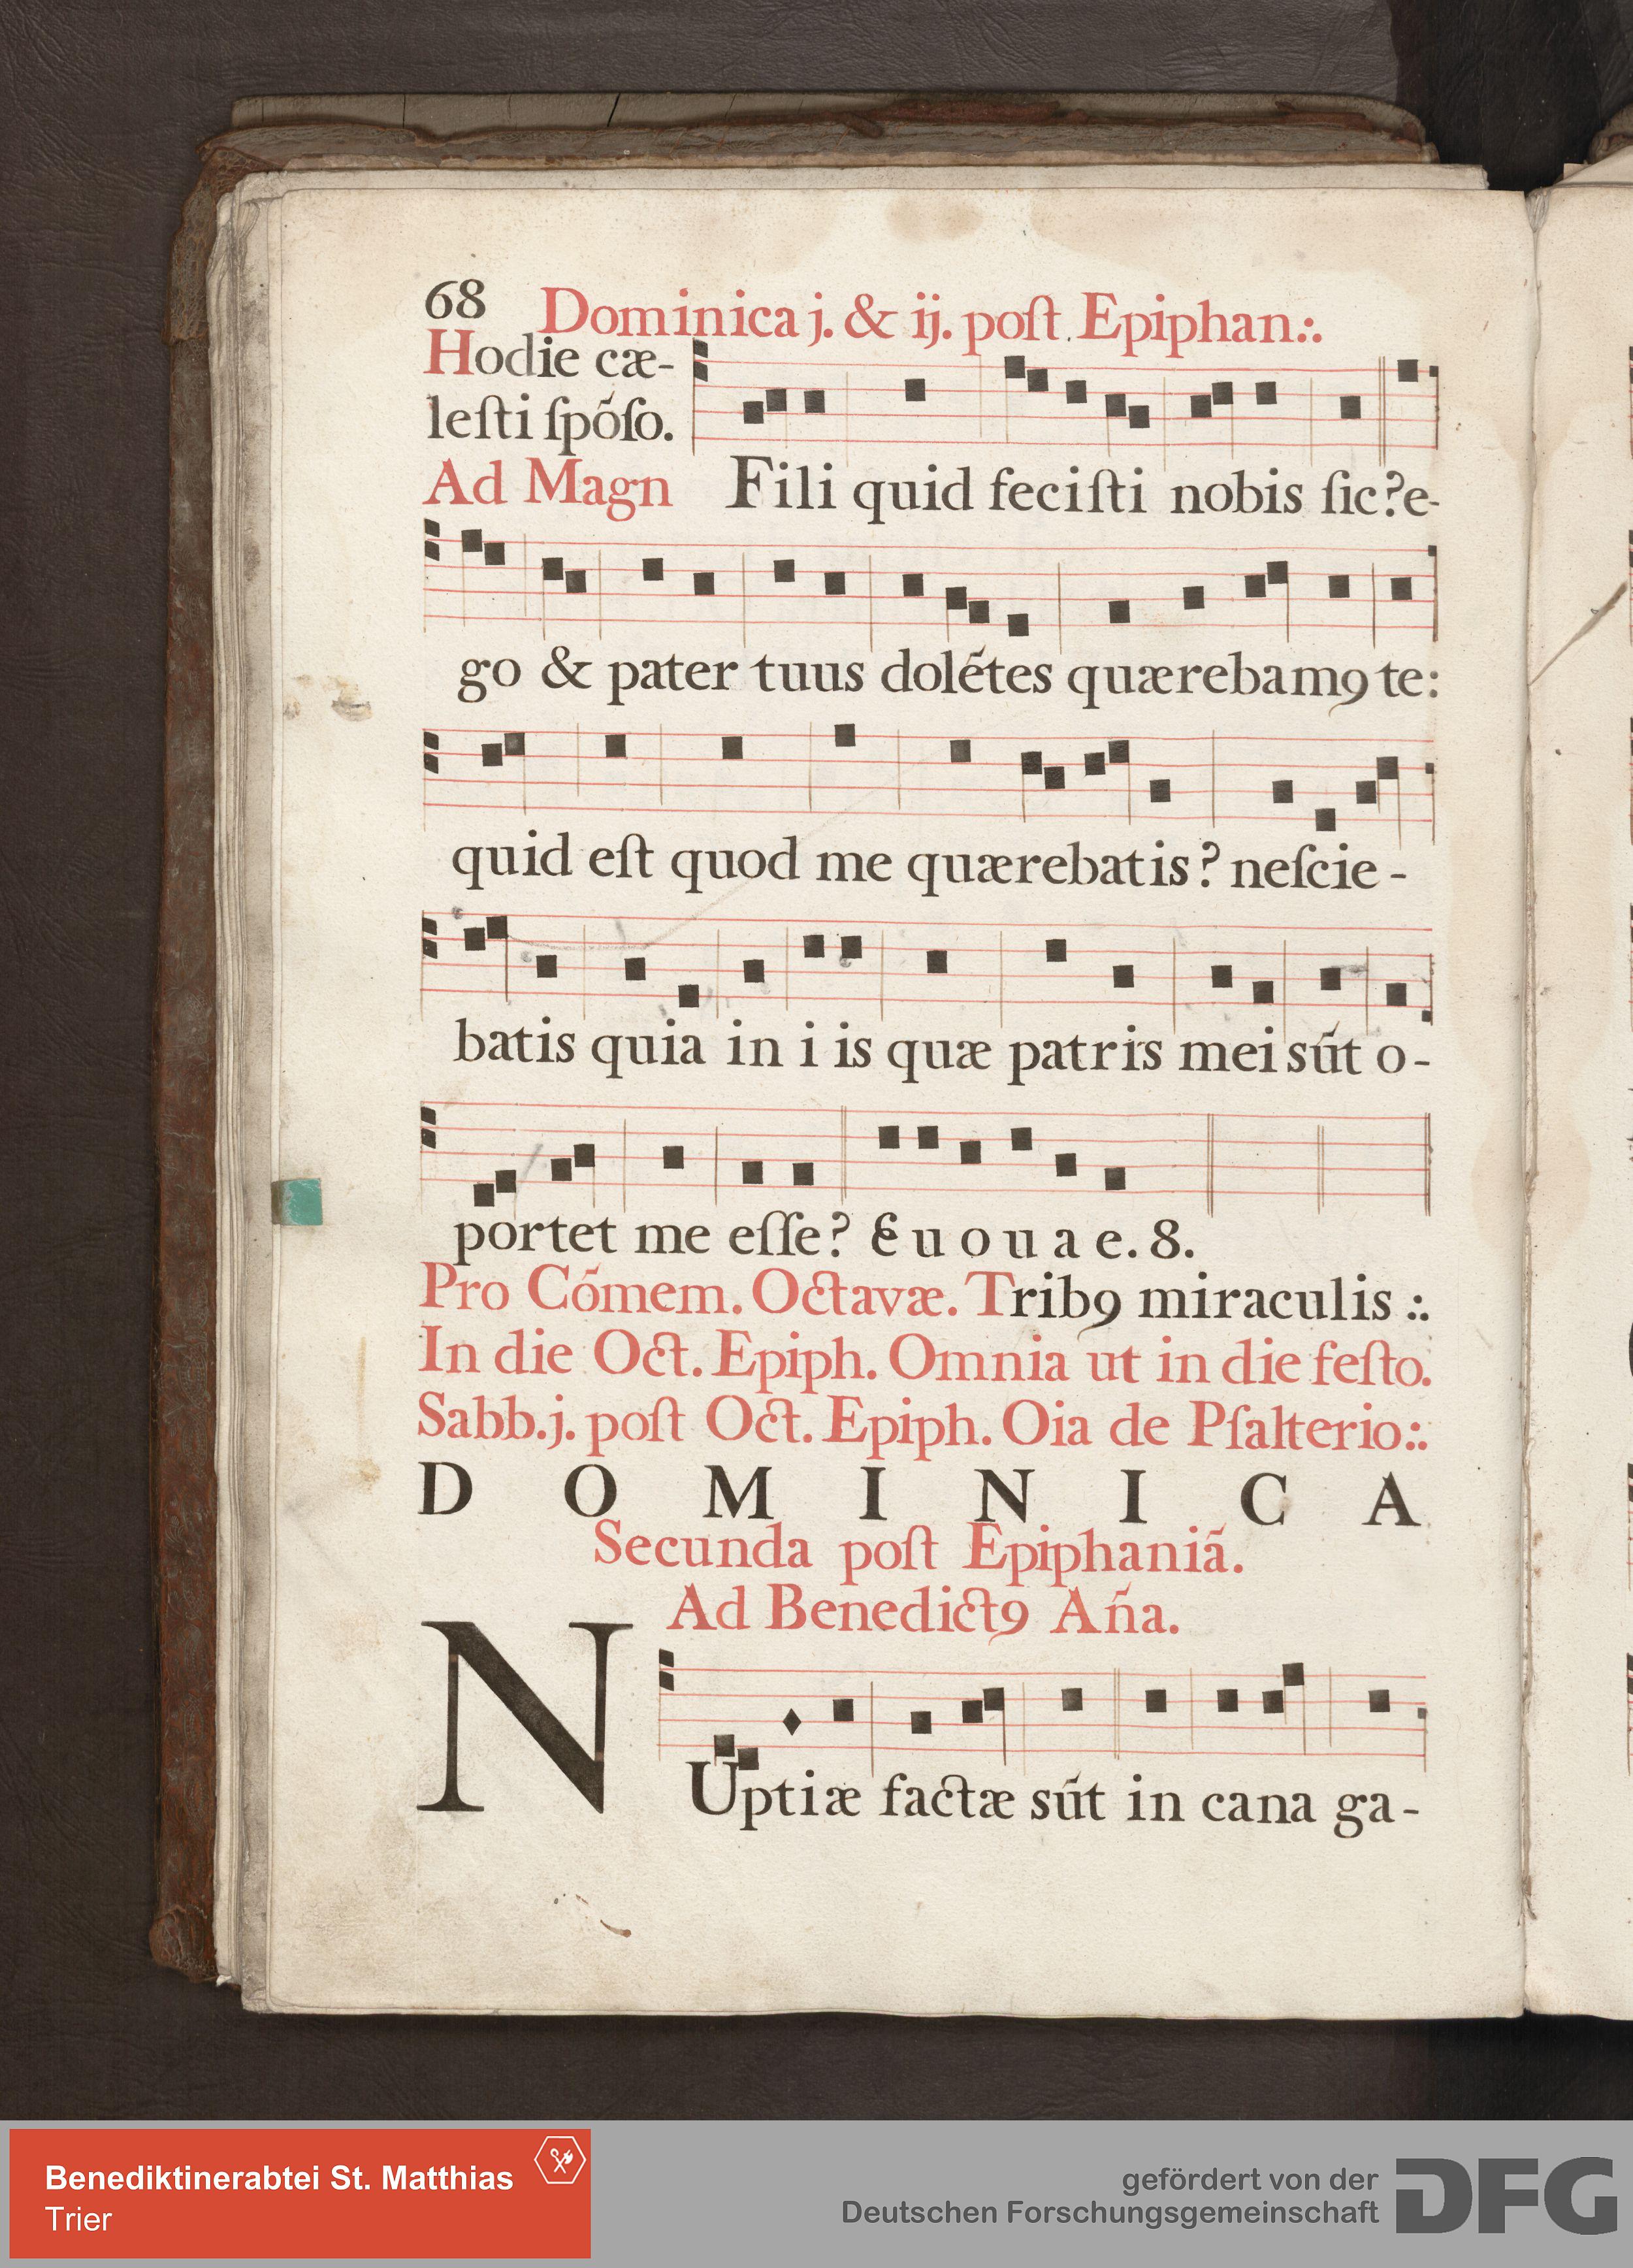 68 Dominica j. & ij. poſt Epiphan:.
Hodie cæ-
leſti ſpõſo.
Ad Magn Fili quid feciſti nobis ſic? e-
go & pater tuus dolẽtes quærebamꝯ te:
quid eſt quod me quærebatis? neſcie-
batis quia in i is quæ patris mei sũt o-
portet me eſſe? Euouae. 8.
Pro Cõmem. Octavæ. Tribꝯ miraculis :.
In die Oct. Epiph. Omnia ut in die feſto.
Sabb. j. poſt Oct. Epiph. Oia de Pſalterio:.
DOMINICA
Secunda poſt Epiphaniã.
Ad Benedictꝯ Aña.
NUptiæ factæ sũt in cana ga-
Benediktinerabtei St. Matthias
Trier
gefördert von der
Deutschen Forschungsgemeinschaft
DFG